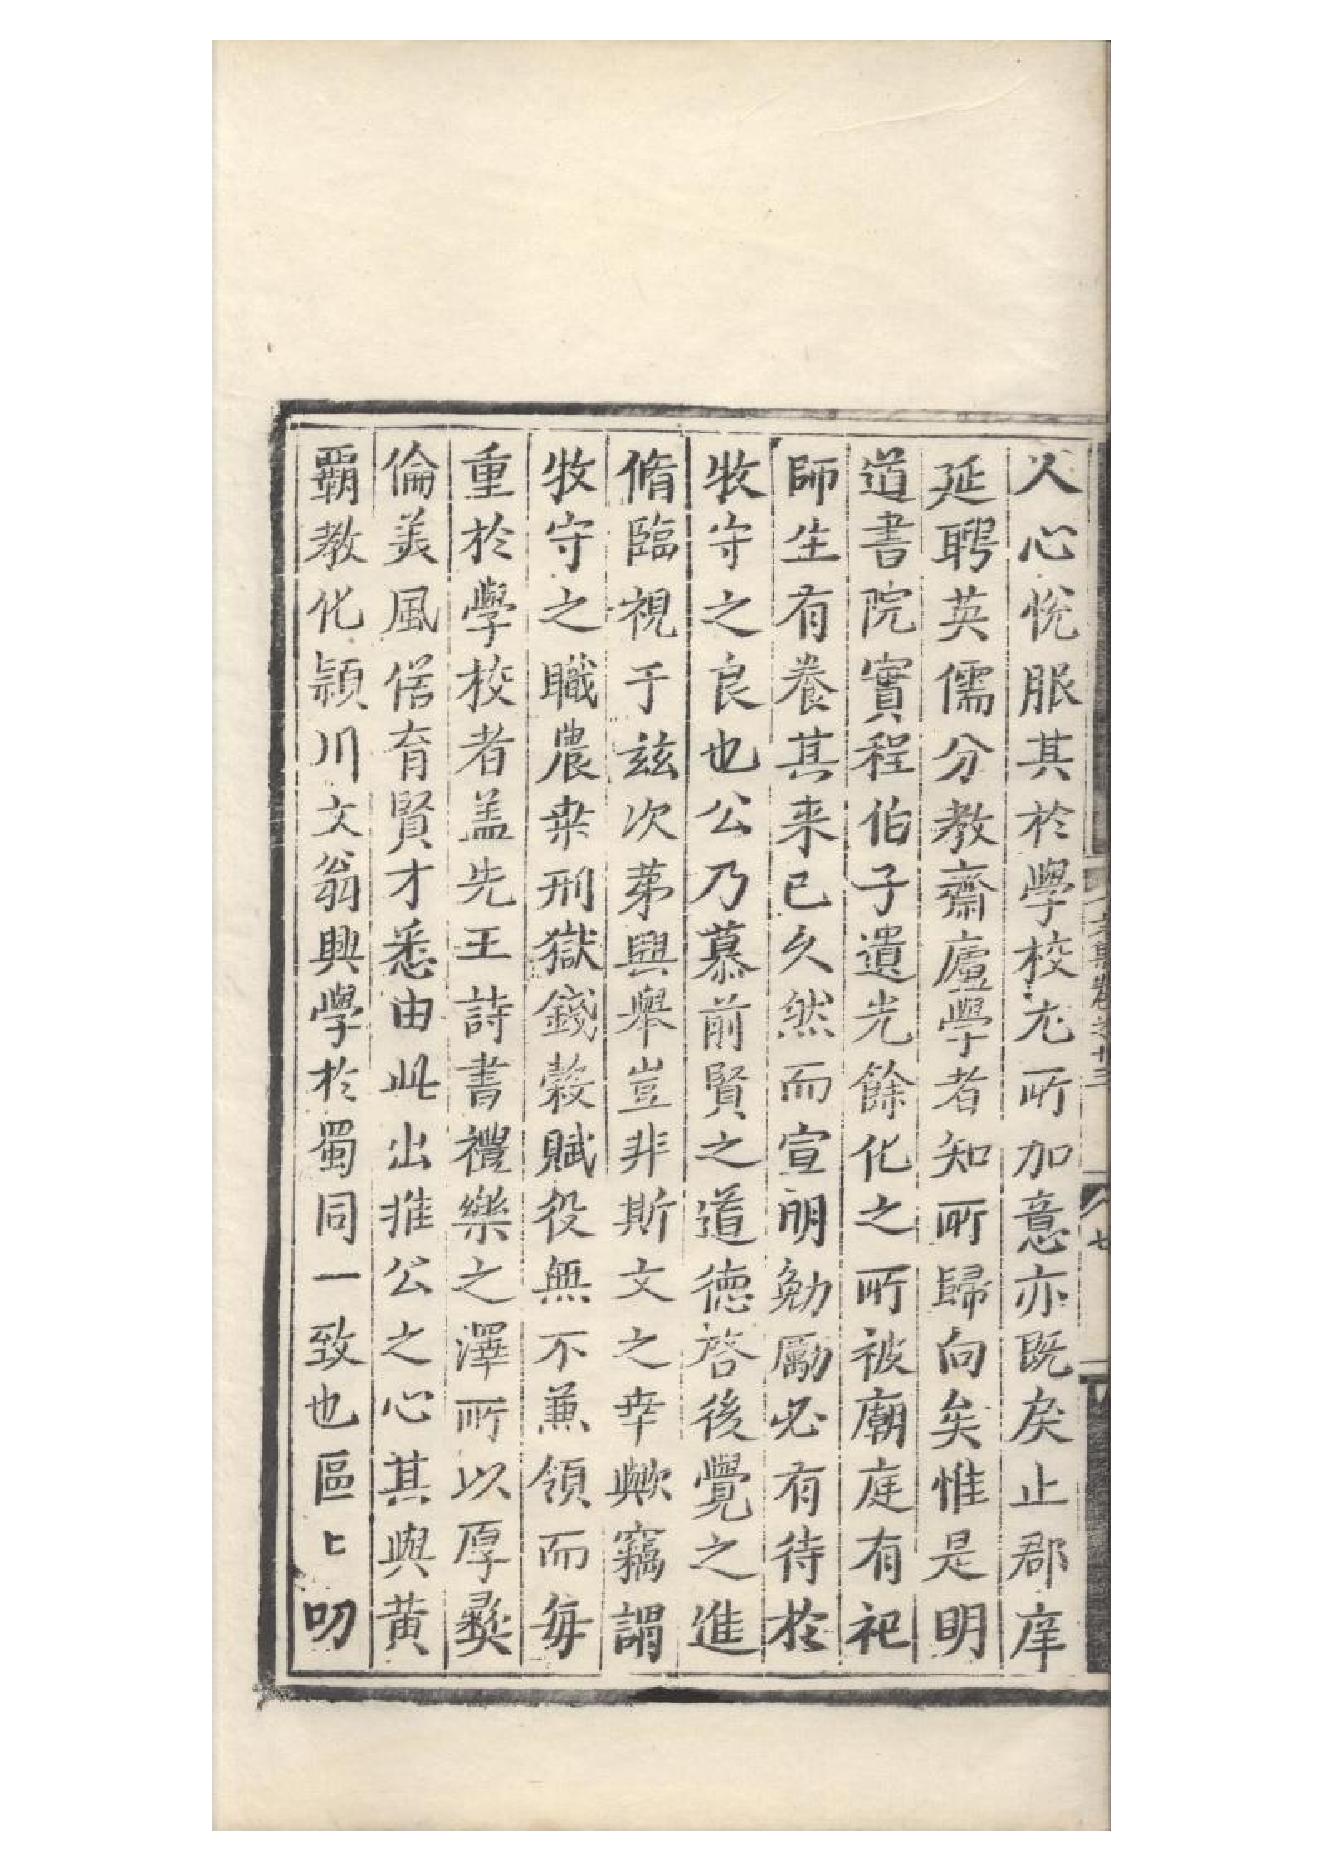 人心悅服其於學校尤所加意亦既矣止郡庠
延聘英儒分教齋廬學者知所歸向矣惟是明
道書院實程伯子遺光餘化之所被廟庭有祀
師生有養其来已久然而宣明勉勵必有待於
牧守之良也公乃慕前賢之道德啓後覺之進
脩臨視于兹次苐興舉豈非斯文之幸歟竊謂
牧守之職農桒刑獄錢榖賦役無不兼領而每
重於學校者盖先王詩書禮樂之澤所以厚彝
倫美風俗育賢才悉由此出推公之心其與黄
霸教化潁川文翁興學於蜀同一致也區〻叨